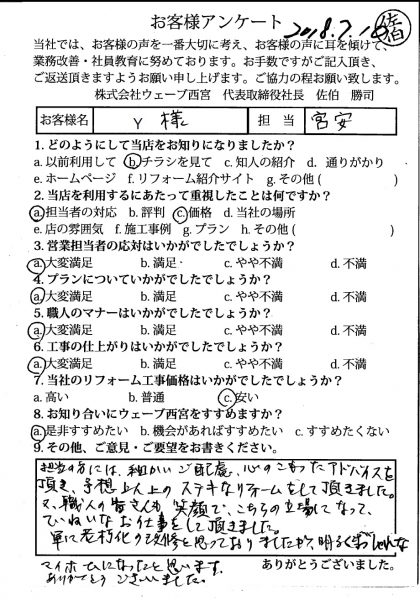 お客様アンケート 2018.7.1 佐伯
当社では、お客様の声を一番大切に考え、お客様の声に耳を傾けて、
業務改善・社員教育に努めております。お手数ですがご記入頂き、
ご返送頂きますようお願い申し上げます。ご協力の程お願い致します。
株式会社ウェーブ西宮 代表取締役社長 佐伯 勝司
お客様名 Y 様 担 当 宮安
1. どのようにして当店をお知りになりましたか?
a. 以前利用して b. チラシを見て c. 知人の紹介 d. 通りがかり
e. ホームページ f. リフォーム紹介サイト g. その他 ( )
2. 当店を利用するにあたって重視したことは何ですか?
a. 担当者の対応 b. 評判 c. 価格 d. 当社の場所
e. 店の雰囲気 f. 施工事例 g. プラン h. その他 ( )
3. 営業担当者の応対はいかがでしたでしょうか?
a. 大変満足 b. 満足 c. やや不満 d. 不満
4. プランについていかがでしたでしょうか?
a. 大変満足 b. 満足 c. やや不満 d. 不満
5. 職人のマナーはいかがでしたでしょうか?
a. 大変満足 b. 満足 c. やや不満 d. 不満
6. 工事の仕上がりはいかがでしたでしょうか?
a. 大変満足 b. 満足 c. やや不満 d. 不満
7. 当社のリフォーム工事価格はいかがでしたでしょうか?
a. 高い b. 普通 c. 安い
8. お知り合いにウェーブ西宮をすすめますか?
a. 是非すすめたい b. 機会があればすすめたい c. すすめたくない
9. その他、ご意見・ご要望をお書きください。
担当の方には、細かいご配慮、心のこもったアドバイスを
頂き、予想以上のステキなリフォームをして頂きました。
又、職人の皆さんも、笑顔で、こちらの立場になって、
ていねいなお仕事をして頂きました。
単に老朽化の改修を思っておりましたが、明るくおしゃれな
マイホームになったと思います。
ありがとうございました。
ありがとうございました。